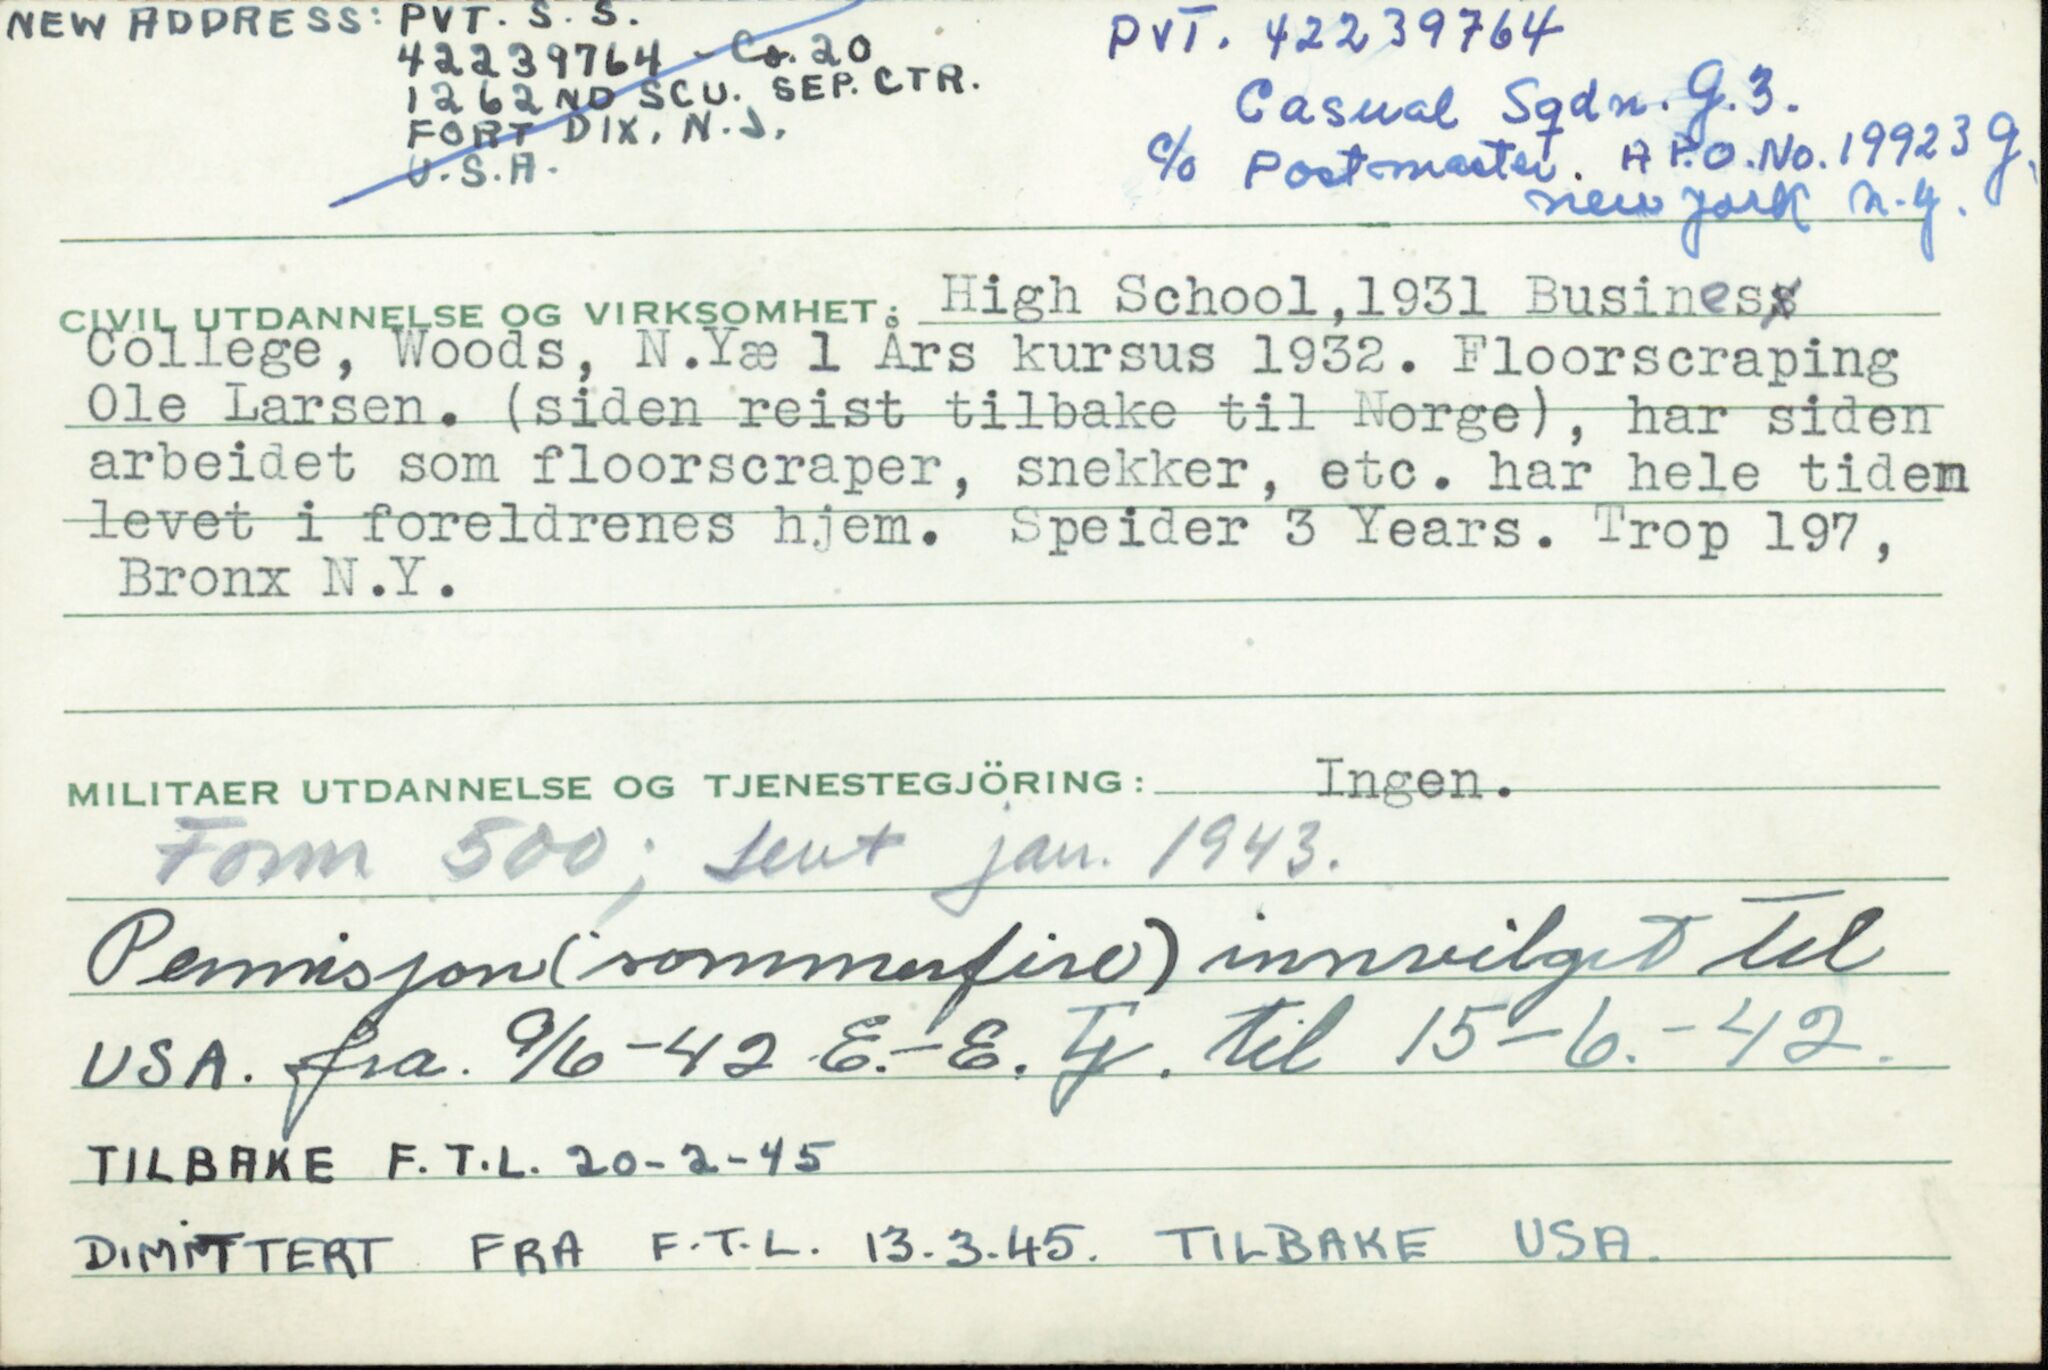 NEW ADDRESS: PVT. S. S.
42239764 - Co. 20
1262ND SCU. SEP. CTR.
FORT DIX, N.J.
U.S.A.
PVT. 42239764
Casual Sqdn. G.3.
c/o Postmaster. A P.O. No. 19923 G.
new york n.y.
CIVIL UTDANNELSE OG VIRKSOMHET: High School,1931 Business
College, Woods, N.Yæ 1 Års kursus 1932. Floorscraping
Ole Larsen. (siden reist tilbake til Norge), har siden
arbeidet som floorscraper, snekker, etc. har hele tiden
levet i foreldrenes hjem. Speider 3 Years. Trop 197,
Bronx N.Y.
MILITAER UTDANNELSE OG TJENESTEGJÖRING: Ingen.
Form 500; sent jan. 1943.
Permisjon (sommerfire) innvilget til
USA. fra. 9/6-42 E.-E. Tj. til 15-6.-42.
TILBAKE F.T.L. 20-2-45
DIMITTERT FRA F.T.L. 13.3.45. TILBAKE USA.